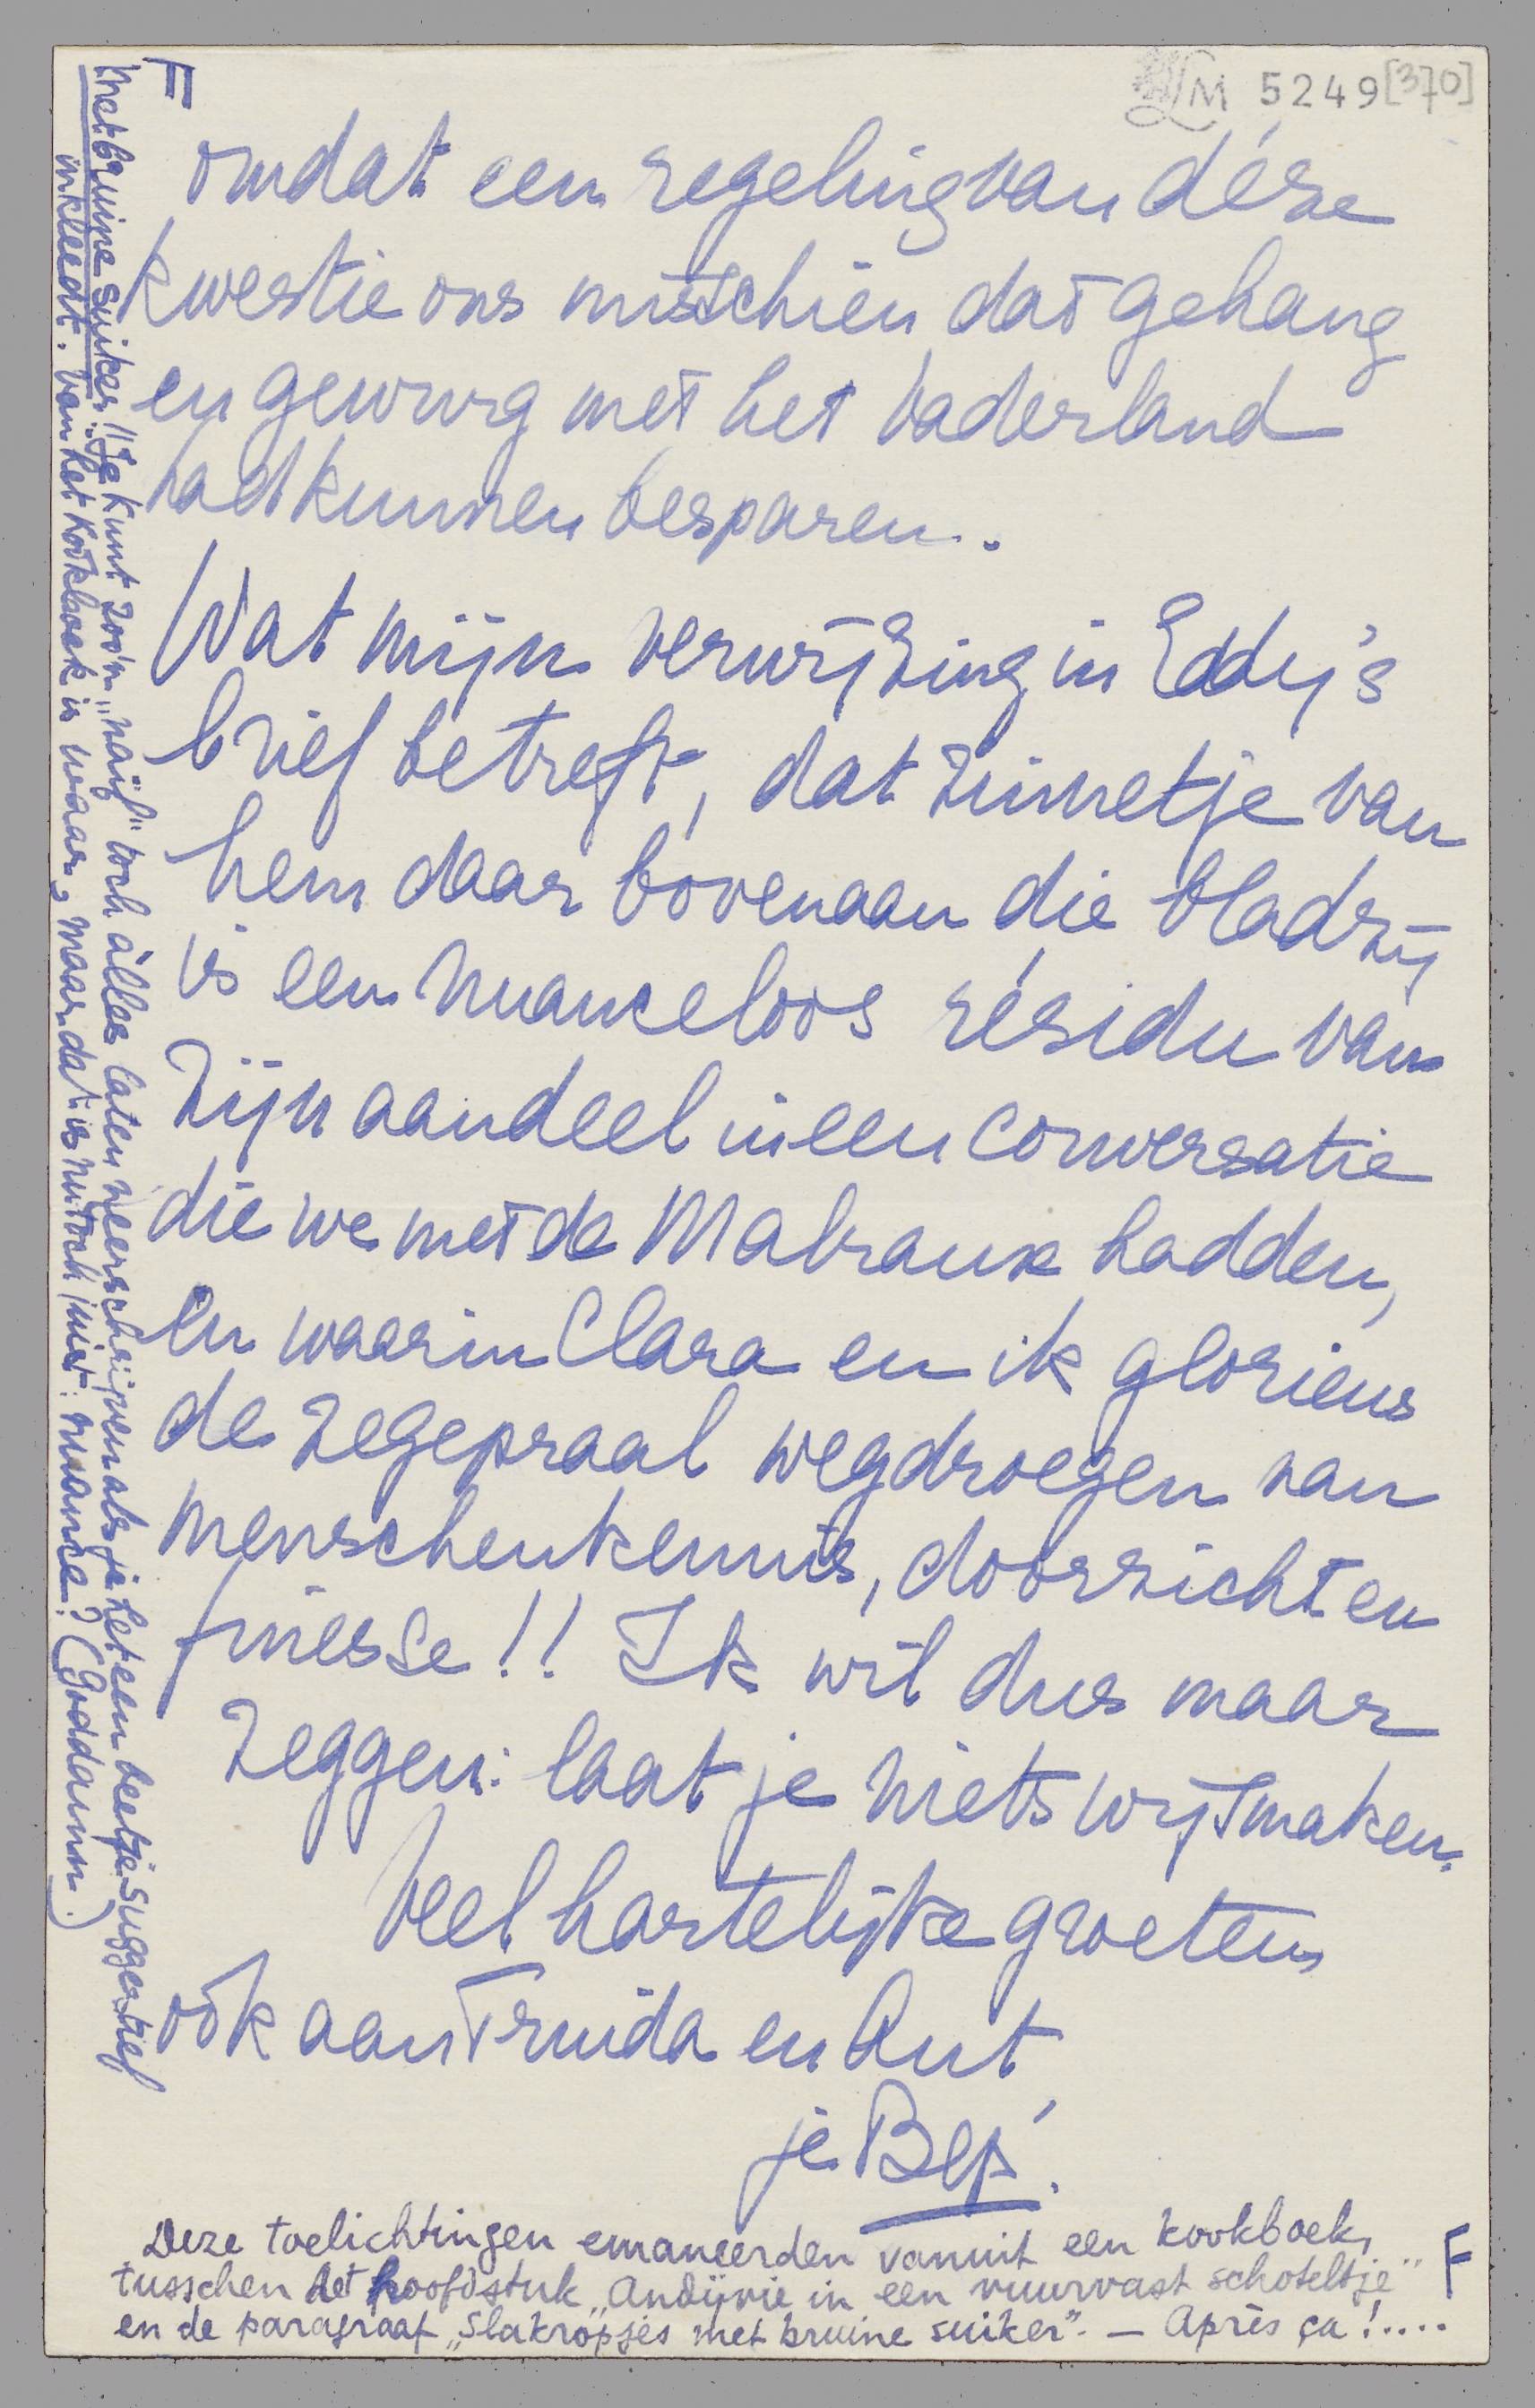 LM 5249 [370]
omdat een regeling van déze
kwestie ons misschien dat gehang
en gewurg met het Vaderland
had kunnen besparen.
Wat mijn verwijzing in Eddy's
brief betreft, dat zinnetje van
hem daar bovenaan die bladzij
is een nuanceloos résidu van
zijn aandeel in een conversatie
die we met de Malraux hadden,
en waarin Clara en ik glorieus
de zegepraal wegdroegen van
menschenkennis, doorzicht en
finesse!! Ik wil dus maar
zeggen: laat je niets wijsmaken.
Veel hartelijke groeten,
ook aan Truida en Ant
je Bep.
Deze toelichtingen emaneerden vanuit een kookboek,
tusschen het hoofdstuk „Andijvie in een vuurvast schoteltje"
en de paragraaf „Slakropjes met bruine suiker". — Après ça!....
F
F
met bruine suiker!! Je kunt zoo'n „naïf" toch álles laten neerschrijven als je het een beetje suggestief
inkleedt. Van het kookboek is waar, maar dat is nu toch juist: nuance? (Goddamn.)